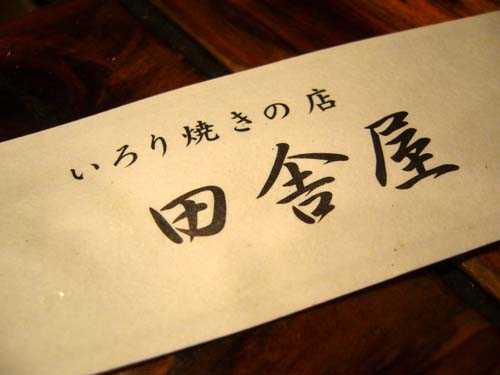 いろり焼きの店
田舎屋